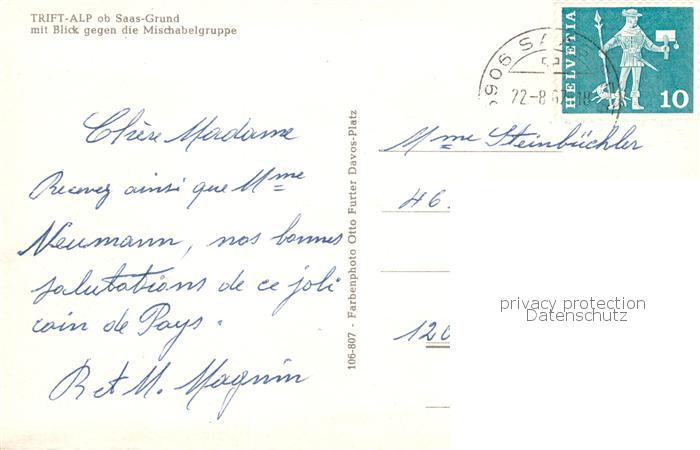 TRIFT-ALP ob Saas-Grund
mit Blick gegen die Mischabelgruppe
Chère Madame
Recevez ainsi que Mme
Neumann, nos bonnes
salutations de ce joli
coin de Pays.
R et M. Magnin
106-807 - Farbenphoto Otto Furter Davos-Platz
3906 SAAS
22-8
18
HELVETIA
10
Mme Steinbüchler
46.
120
privacy protection
Datenschutz